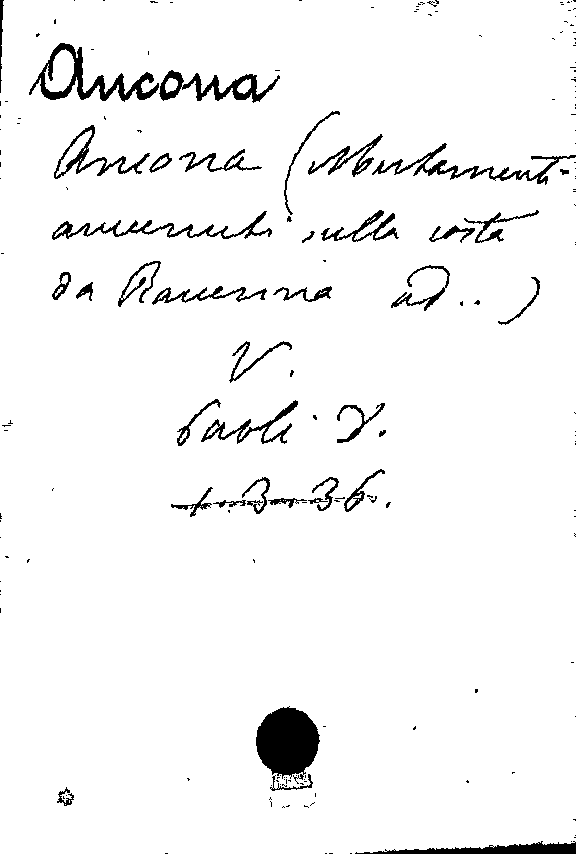 Ancona
Ancona (Mutamenti
avvenuti sulla costa
da Ravenna ad..)
V.
Paoli D.
1.3.36.